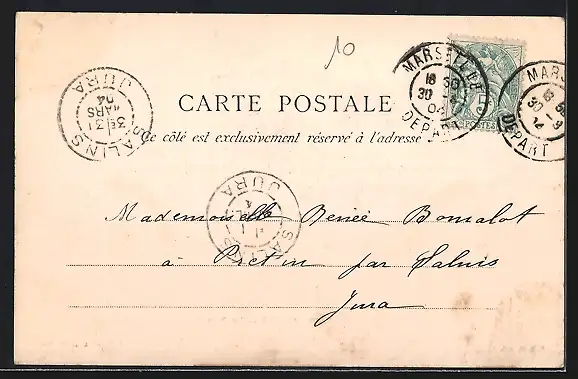 10
MARSEILLE
16 30
30
04
DEPART
MARS
30 -3
DEPART
POSTES
SALINS
3E 31
MARS
04
JURA
CARTE POSTALE
Ce côté est exclusivement réservé à l'adresse
SALINS
JURA
Mademoiselle Renée Bonnalot
à Pretin par Salins
Jura